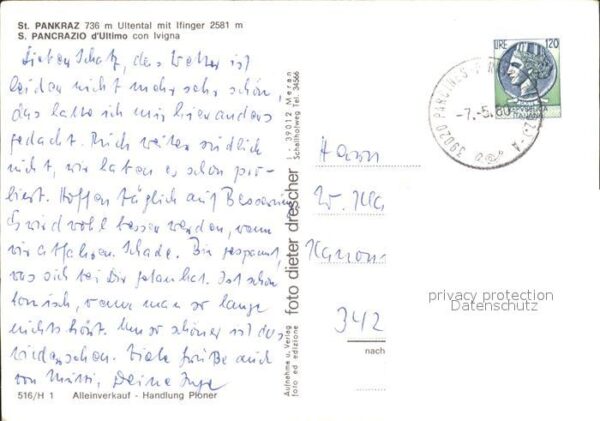 St. PANKRAZ 736 m Ultental mit Ifinger 2581 m
S. PANCRAZIO d'Ultimo con Ivigna
Lieben Schatz, das Wetter ist
leider nicht mehr sehr schön,
das hatte ich mir hier anders
gedacht. Auch weiter südlich
nicht, wir haben es schon pro-
biert. Hoffen täglich auf Besserung
Es wird wohl besser werden, wenn
wir abfahren. Schade. Bin gespannt,
was sich bei Dir getan hat. Ist schon
komisch, wenn man so lange
nichts hört. Um so schöner ist das
Wiedersehen. Viele Grüße auch
von Mutti, Deine Inge
516/H 1 Alleinverkauf - Handlung Ploner
foto dieter drescher I - 39012 Meran
Schallhofweg Tel. 34566
Aufnahme u. Verlag
foto ed edizione
LIRE 120
REPUBBLICA
ITALIANA
39020 PARCINES
-7.-5.80
Herrn
W.
342
nach
privacy protection
Datenschutz